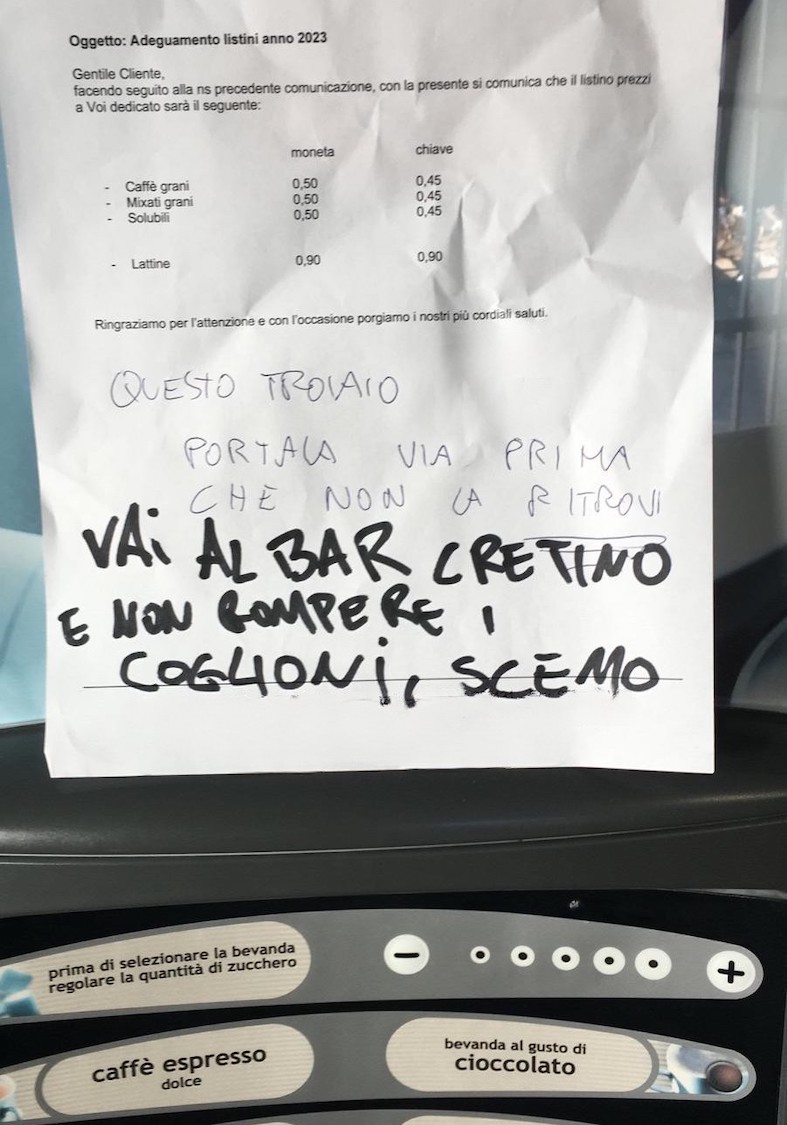 Oggetto: Adeguamento listini anno 2023
Gentile Cliente,
facendo seguito alla ns precedente comunicazione, con la presente si comunica che il listino prezzi
a Voi dedicato sarà il seguente:
moneta chiave
- Caffè grani 0,50 0,45
- Mixati grani 0,50 0,45
- Solubili 0,50 0,45
- Lattine 0,90 0,90
Ringraziamo per l'attenzione e con l'occasione porgiamo i nostri più cordiali saluti.
QUESTO TROIAIO
PORTALA VIA PRIMA
CHE NON LA RITROVI
VAi AL BAR CRETINO
E NON ROMPERE I
COGLIONi, SCEMO
prima di selezionare la bevanda
regolare la quantità di zucchero
caffè espresso
dolce
bevanda al gusto di
cioccolato